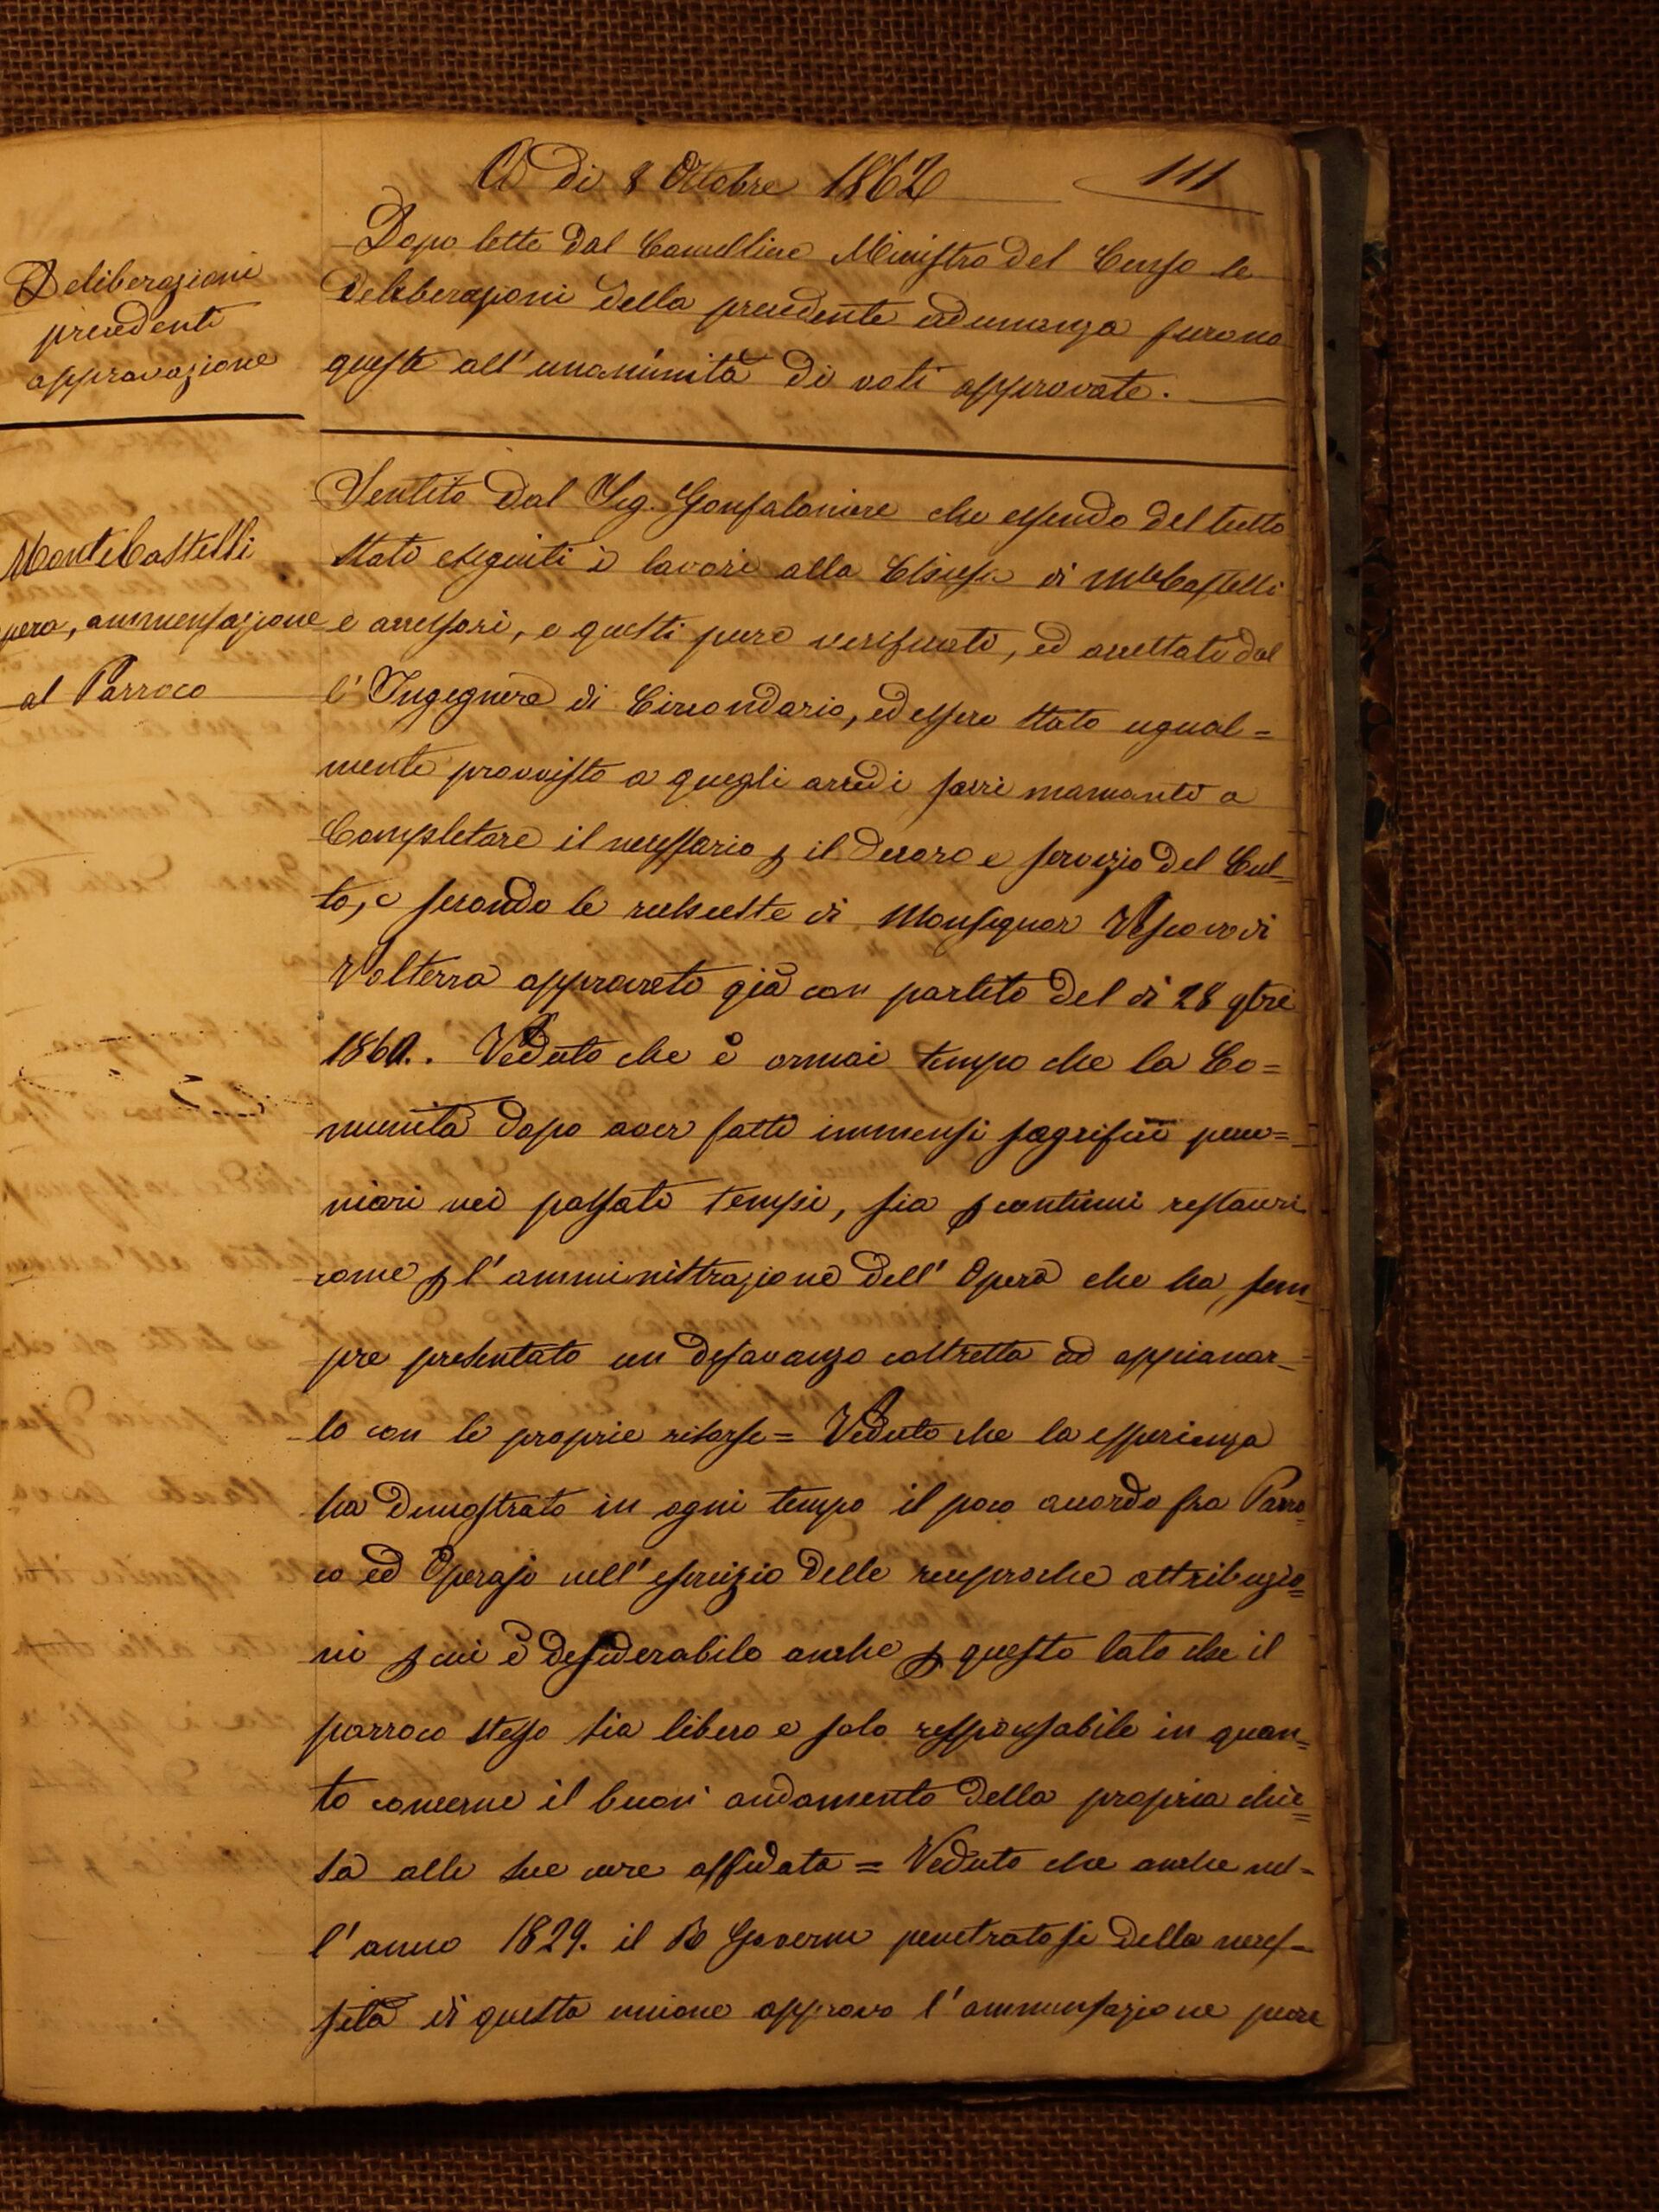 A dì 8 Ottobre 1862
111
Deliberazioni
precedenti
approvazione
Dopo lette dal Cancelliere Ministro del Censo le
deliberazioni della precedente adunanza furono
queste all'unanimità di voti approvate.
MonteCastelli
pera, ammensazione
al Parroco
Sentito dal Sig. Gonfaloniere che essendo del tutto
stati eseguiti i lavori alla Chiesa di MteCastelli
e accessori, e questi pure verificati, ed accettati dal
l'Ingegnere di Circondario, ed essere stato ugual=
mente provvisto a quegli arredi sacri mancanti a
Completare il necessario p il decoro e servizio del Cul_
to, e secondo le richieste di Monsignor Vescovo di
Volterra approvato già con partito del dì 28 9bre
1860.. Veduto che è ormai tempo che la Co=
munità dopo aver fatti immensi sagrifici pecu=
niari nei passati tempi, sia p continui restauri
come p l'amministrazione dell'Opera che ha sem_
pre presentato un desavanzo costretta ad appianar_
lo con le proprie risorse = Veduto che la esperienza
ha dimostrato in ogni tempo il poco accordo fra Parro_
co ed Operajo nell'esercizio delle reciproche attribuzio=
ni p cui è desiderabile anche p questo lato che il
parroco stesso sia libero e solo responsabile in quan=
to concerne il buon andamento della propria chie=
sa alle sue cure affidata = Veduto che anche nel=
l'anno 1829. il R Governo penetratosi della neces=
sità di questa unione approvò l'ammensazione pure